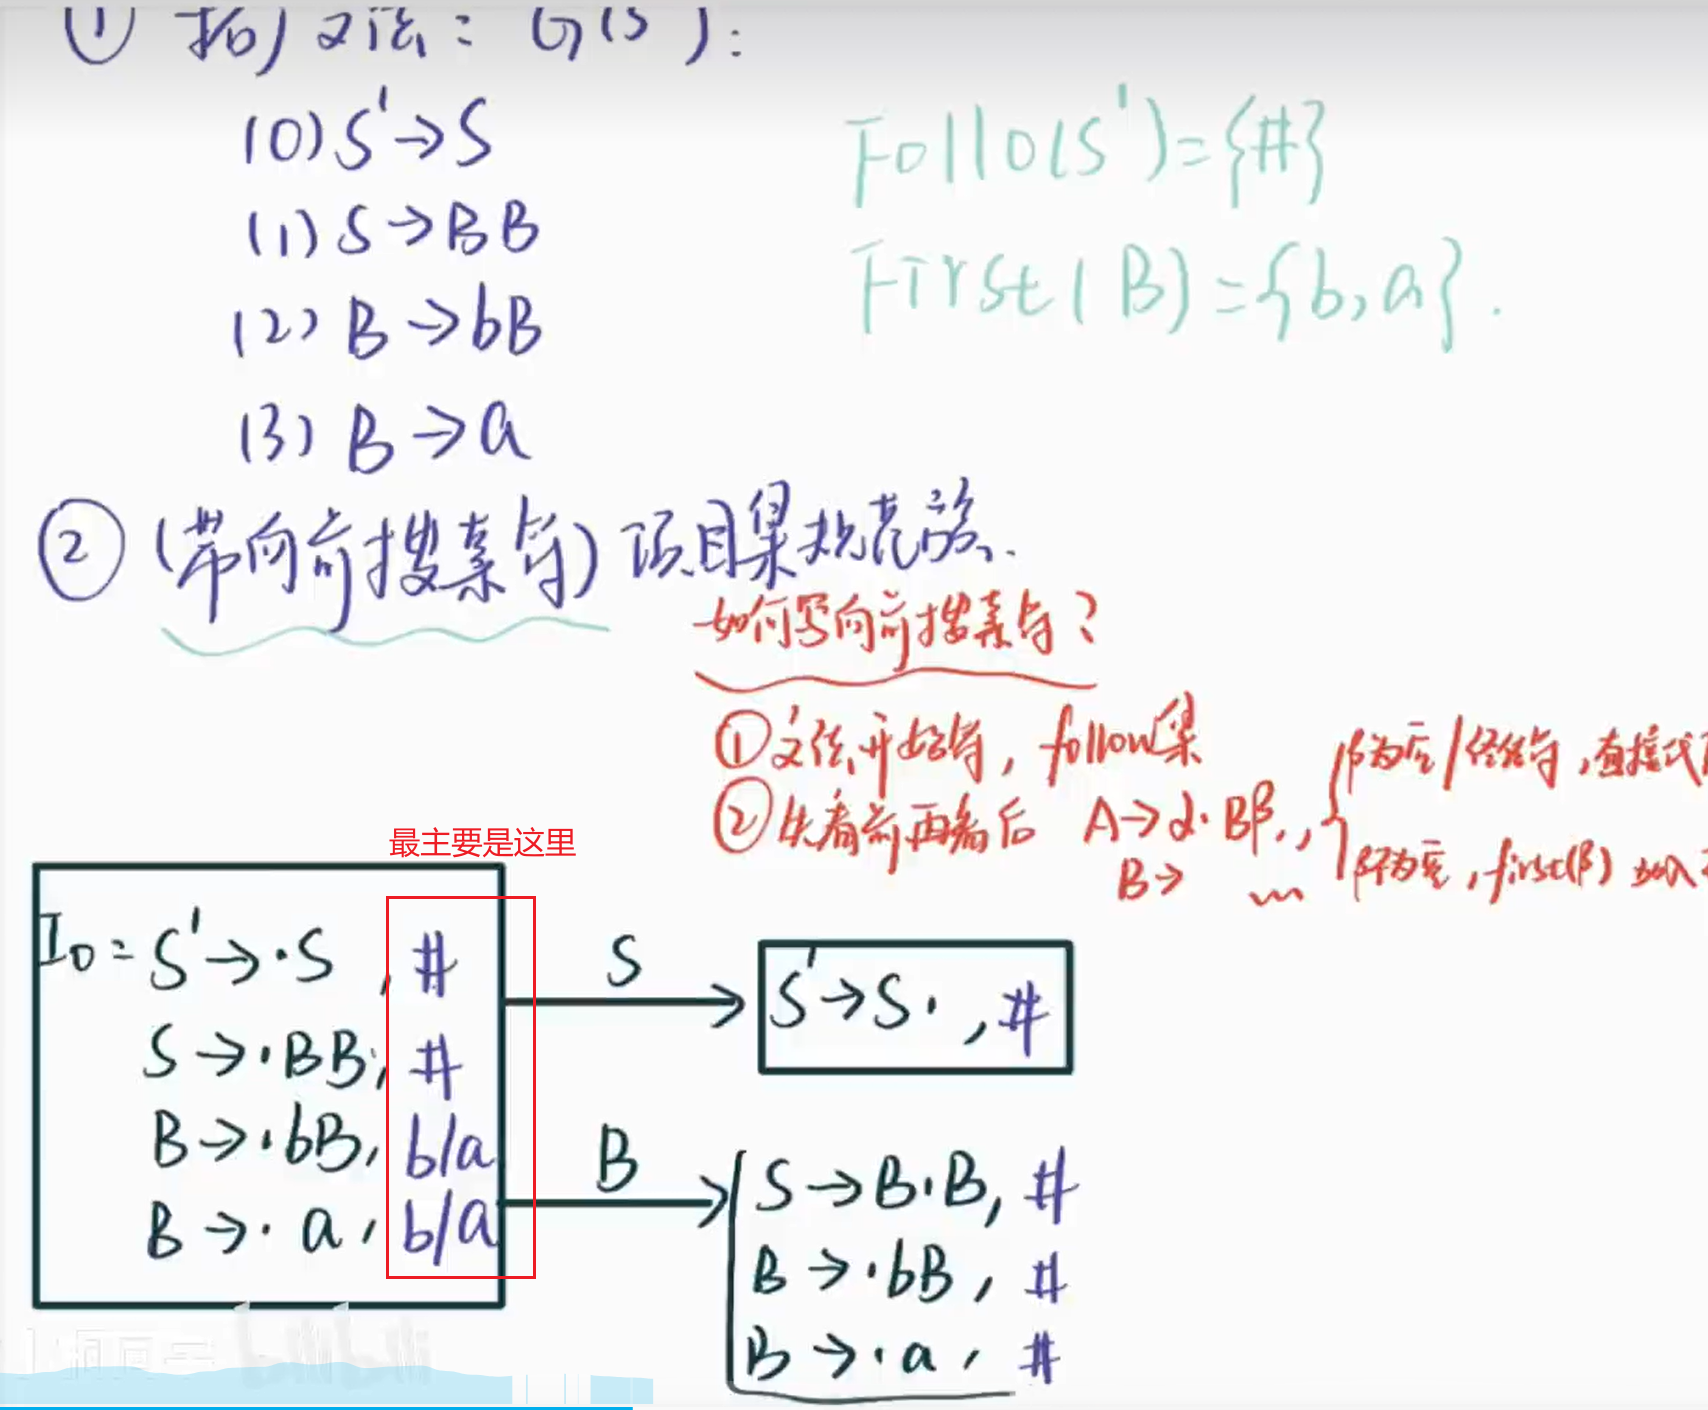 ① 拓广文法: G(S'):
(0) S'→S
(1) S→BB
(2) B→bB
(3) B→a
Follo(S')={#}
First(B)={b,a}.
② (带向前搜索符)项目集规范族.
如何写向前搜索符?
①文法开始符, follow集
②先看前再看后 A→α·Bβ, , β为空/终结符,直接
B→ β不为空, first(β)加入
最主要是这里
I0= S'→·S , #
S→·BB, #
B→·bB, b/a
B→·a, b/a
S
S'→S· , #
B
S→B·B, #
B→·bB, #
B→·a, #
bilibili